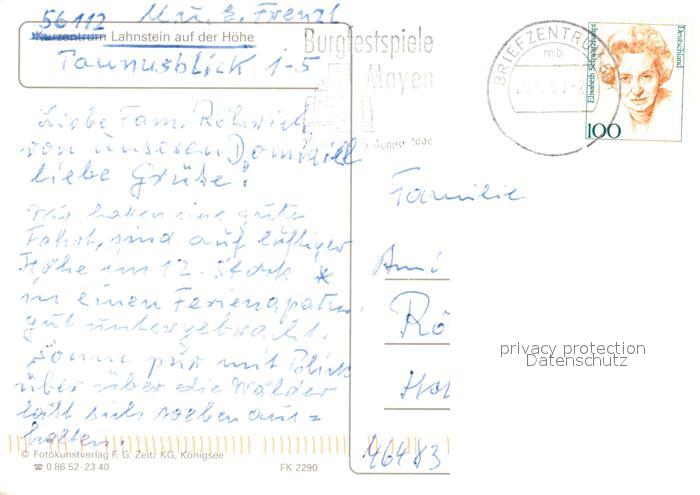 56112 M. u. E. Frenzl
Kurzentrum Lahnstein auf der Höhe
Taunusblick 1-5
Burgfestspiele
Mayen
August
BRIEFZENTRUM
mb
Deutschland
Elisabeth Schwarzhaupt
100
Liebe Fam. Röhrich
von unseren Domiziel
liebe Grüße!
Wir hatten eine gute
Fahrt, sind auf luftiger
Höhe im 12. Stock *
in einen Ferienapatm.
gut untergebracht.
Sonne pur mit Blick
über über die Wälder
läßt sich soeben aus=
halten.
Familie
Rö
46483
privacy protection
Datenschutz
© Fotokunstverlag F. G. Zeitz KG, Königsee
☎ 0 86 52-23 40
FK 2290